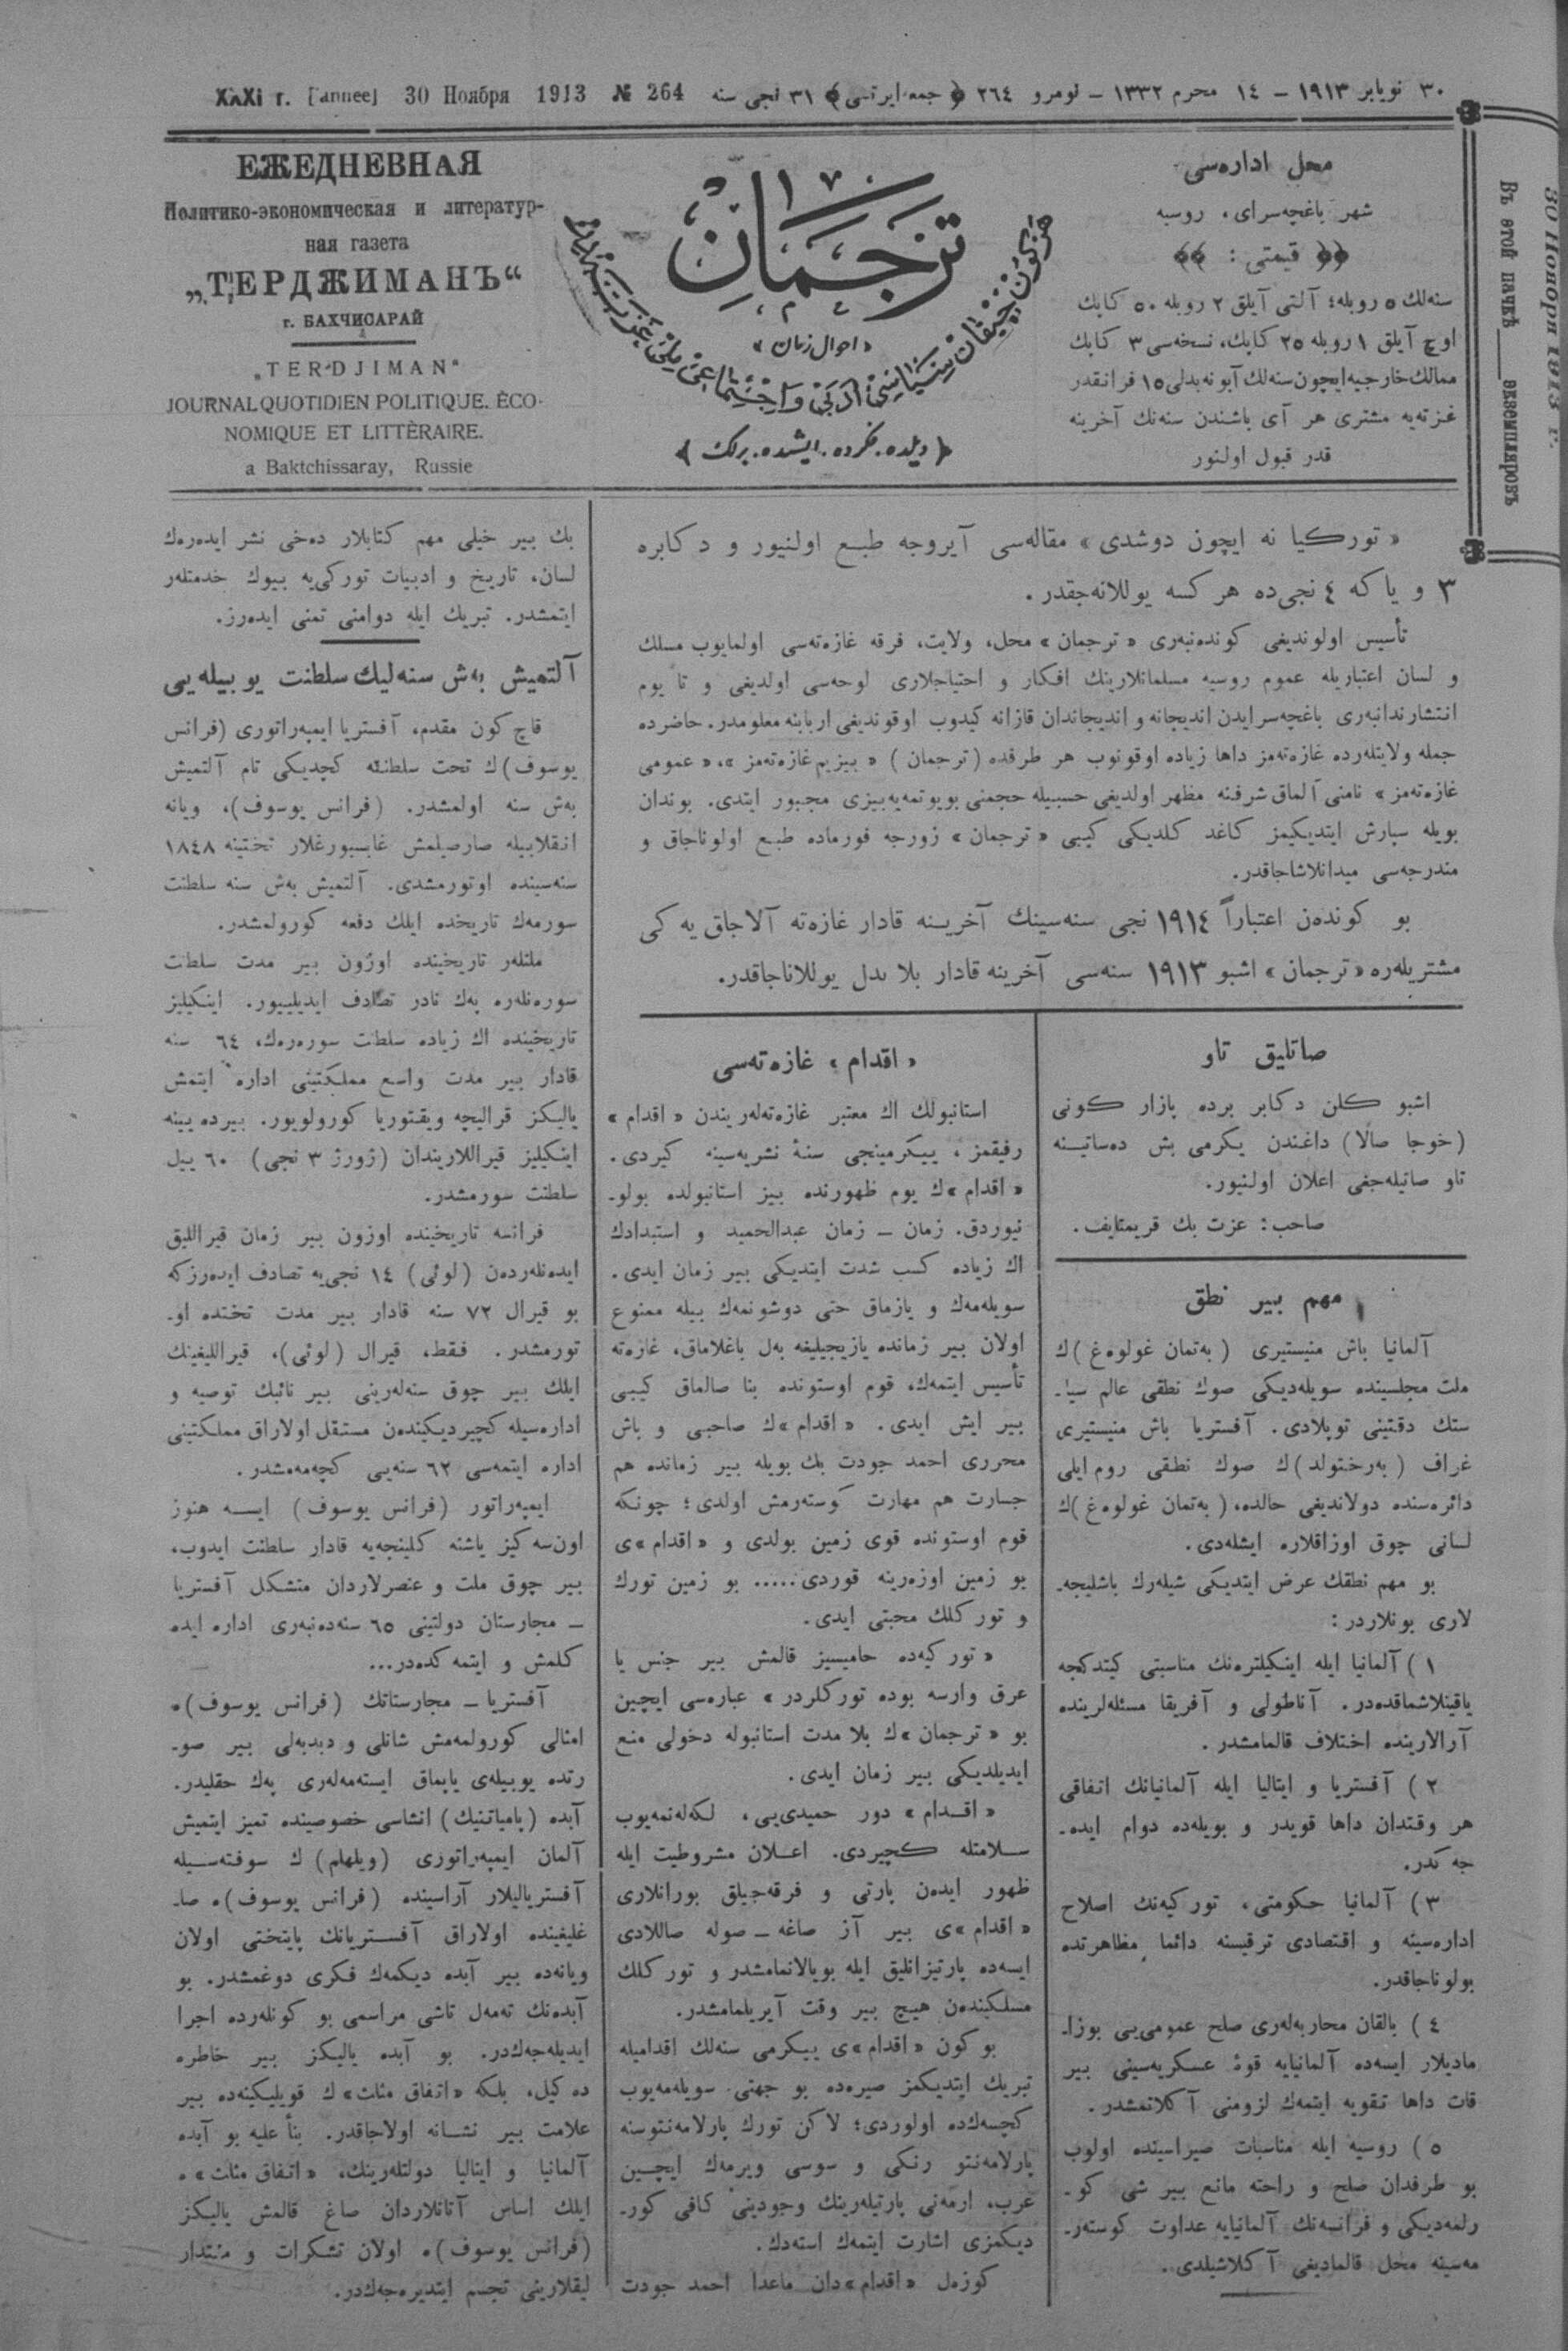 ٣٠ نویابر ١٩١٣ – ١٤ محرم ١٣٣٢ – نومرو ٢٦٤ ﴿جمعه ایرتهسی﴾ ٣١ نجی سنه
XXXI г. [année] 30 Ноября 1913 № 264
30 Ноября 1913 г.
Въ этой пачкѣ ____ экземпляровъ
ЕЖЕДНЕВНАЯ
Политико-экономическая и литератур-
ная газета
„ТЕРДЖИМАНЪ“
г. БАХЧИСАРАЙ
„TERDJIMAN“
JOURNAL QUOTIDIEN POLITIQUE. ÈCO-
NOMIQUE ET LITTÈRAIRE.
a Baktchissaray, Russie
ترجمان
«احوال زمان»
﴿دیلده، فکرده، ایشده، برلك﴾
محل ادارهسی
شهر باغچهسرای، روسیه
قیمتی:
سنهلك ٥ روبله؛ آلتی آیلق ٢ روبله ٥٠ کاپك
اوچ آیلق ١ روبله ٢٥ کاپك، نسخهسی ٣ کاپك
ممالك خارجیه ایچون سنهلك آبونه بدلی ١٥ فرانقدر
غزتهیه مشتری هر آی باشندن سنهنك آخرینه
قدر قبول اولنور
«تورکیا نه ایچون دوشدی» مقالهسی آیروجه طبع اولنیور و دکابره
٣ و یا که ٤ نجیده هر کسه یوللانهجقدر.
تأسیس اولوندیغی کوندهنبهری «ترجمان» محل، ولایت، فرقه غازهتهسی اولمایوب مسلك
و لسان اعتباریله عموم روسیه مسلمانلارینك افکار و احتیاجلاری لوحهسی اولدیغی و تا یوم
انتشارندانبهری باغچهسرایدن اندیجانه و اندیجاندان قازانه کیدوب اوقوندیغی اربابنه معلومدر. حاضرده
جمله ولایتلهرده غازهتهمز داها زیاده اوقونوب هر طرفده (ترجمان) «بیزیم غازهتهمز»، «عمومی
غازهتهمز» نامنی آلماق شرفنه مظهر اولدیغی حسبیله حجمنی بویوتمهیه بیزی مجبور ایتدی. بوندان
بویله سپارش ایتدیکیمز کاغد کلدیکی کیبی «ترجمان» زورجه فورماده طبع اولوناجاق و
مندرجهسی میدانلاشاجاقدر.
بو کوندهن اعتباراً ١٩١٤ نجی سنهسینك آخرینه قادار غازهته آلاجاق یه کی
مشتریلهره «ترجمان» اشبو ١٩١٣ سنهسی آخرینه قادار بلا بدل یوللاناجاقدر.
صاتلیق تاو
اشبو کلن دکابر برده پازار کونی
(خوجا صالا) داغندن یکرمی بش دهساتینه
تاو صاتیلهجغی اعلان اولنیور.
صاحب: عزت بك قریمتایف.
مهم بیر نطق
آلمانیا باش منیستیری (بهتمان غولوهغ)ك
ملت مجلسینده سویلهدیکی صوك نطقی عالم سیا-
ستك دقتینی توپلادی. آفستریا باش منیستیری
غراف (بهرختولد)ك صوك نطقی روم ایلی
دائرهسنده دولاندیغی حالده، (بهتمان غولوهغ)ك
لسانی چوق اوزاقلاره ایشلهدی.
بو مهم نطقك عرض ایتدیکی شیلهرك باشلیجه-
لاری بونلاردر:
١) آلمانیا ایله اینکیلترهنك مناسبتی کیتدکجه
یاقینلاشماقدهدر. آناطولی و آفریقا مسئلهلرینده
آرالارینده اختلاف قالمامشدر.
٢) آفستریا و ایتالیا ایله آلمانیانك اتفاقی
هر وقتدان داها قویدر و بویلهده دوام ایده-
جه کدر.
٣) آلمانیا حکومتی، تورکیهنك اصلاح
ادارهسینه و اقتصادی ترقیسنه دائما مظاهرتده
بولوناجاقدر.
٤) بالقان محاربهلهری صلح عمومییی بوزا-
مادیلار ایسهده آلمانیایه قوهٔ عسکریهسینی بیر
قات داها تقویه ایتمهك لزومنی آکلاتمشدر.
٥) روسیه ایله مناسبات صیراسینده اولوب
بو طرفدان صلح و راحته مانع بیر شی کو-
رلمهدیکی و فرانسهنك آلمانیایه عداوت کوستهر-
مهسینه محل قالمادیغی آکلاشیلدی.
«اقدام» غازهتهسی
استانبولك اك معتبر غازهتهلهریندن «اقدام»
رفیقمز، ییکرمینجی سنهٔ نشریهسینه کیردی.
«اقدام»ك یوم ظهورنده بیز استانبولده بولو-
نیوردق. زمان – زمان عبدالحمید و استبدادك
اك زیاده کسب شدت ایتدیکی بیر زمان ایدی.
سویلهمهك و یازماق حتی دوشونمهك بیله ممنوع
اولان بیر زمانده یازیجیلیغه بهل باغلاماق، غازهته
تأسیس ایتمهك، قوم اوستونده بنا صالماق کیبی
بیر ایش ایدی. «اقدام»ك صاحبی و باش
محرری احمد جودت بك بویله بیر زمانده هم
جسارت هم مهارت کوستهرمش اولدی؛ چونکه
قوم اوستونده قوی زمین بولدی و «اقدام»ی
بو زمین اوزهرینه قوردی..... بو زمین تورك
و تورکلك محبتی ایدی.
«تورکیهده حامیسیز قالمش بیر جنس یا
عرق وارسه بوده تورکلردر» عبارهسی ایچین
بو «ترجمان»ك بلا مدت استانبوله دخولی منع
ایدیلدیکی بیر زمان ایدی.
«اقدام» دور حمیدییی، لکهلهنمهیوب
سلامتله کچیردی. اعلان مشروطیت ایله
ظهور ایدهن پارتی و فرقهجیلق بورانلاری
«اقدام»ی بیر آز صاغه – صوله صاللادی
ایسهده پارتیزانلیق ایله بویالانمامشدر و تورکلك
مسلکیندهن هیچ بیر وقت آیریلمامشدر.
بو کون «اقدام»ی ییکرمی سنهلك اقدامیله
تبریك ایتدیکمز صیرهده بو جهتی سویلهمهیوب
کچسهكده اولوردی؛ لاکن تورك پارلامهنتوسنه
پارلامهنتو رنکی و سوسی ویرمهك ایچین
عرب، ارمهنی پارتیلهرینك وجودینی کافی کور-
دیکمزی اشارت ایتمهك استهدك.
کوزهل «اقدام»دان ماعدا احمد جودت
بك بیر خیلی مهم کتابلار دهخی نشر ایدهرهك
لسان، تاریخ و ادبیات تورکییه بیوك خدمتلهر
ایتمشدر. تبریك ایله دوامنی تمنی ایدهرز.
آلتمیش بهش سنهلیك سلطنت یوبیلهیی
قاچ کون مقدم، آفستریا ایمپهراتوری (فرانس
یوسوف)ك تحت سلطنته کچدیکی تام آلتمیش
بهش سنه اولمشدر. (فرانس یوسوف)، ویانه
انقلابیله صارصیلمش غابسبورغلار تختینه ١٨٤٨
سنهسینده اوتورمشدی. آلتمیش بهش سنه سلطنت
سورمهك تاریخده ایلك دفعه کورولمشدر.
ملتلهر تاریخینده اوزون بیر مدت سلطنت
سورهنلهره پهك نادر تصادف ایدیلییور. اینکیلیز
تاریخینده اك زیاده سلطنت سورهرهك، ٦٤ سنه
قادار بیر مدت واسع مملکتینی اداره ایتمش
یالیکز قرالیچه ویقتوریا کورولویور. بیرده یینه
اینکیلیز قیراللاریندان (ژورژ ٣ نجی) ٦٠ ییل
سلطنت سورمشدر.
فرانسه تاریخینده اوزون بیر زمان قیراللیق
ایدهنلهردهن (لوئی) ١٤ نجییه تصادف ایدهرزکه
بو قیرال ٧٢ سنه قادار بیر مدت تختده او-
تورمشدر. فقط، قیرال (لوئی)، قیراللیغینك
ایلك بیر چوق سنهلهرینی بیر نائبك توصیه و
ادارهسیله کچیردیکیندهن مستقل اولاراق مملکتینی
اداره ایتمهسی ٦٢ سنهیی کچهمهمشدر.
ایمپهراتور (فرانس یوسوف) ایسه هنوز
اونسهکیز یاشنه کلینجهیه قادار سلطنت ایدوب،
بیر چوق ملت و عنصرلاردان متشکل آفستریا
– مجارستان دولتینی ٦٥ سنهدهنبهری اداره ایده
کلمش و ایتمهکدهدر...
آفستریا – مجارستانك (فرانس یوسوف)ه
امثالی کورولمهمش شانلی و دبدبهلی بیر صو-
رتده یوبیلهی یاپماق ایستهمهلهری پهك حقلیدر.
آبده (پامیاتنیك) انشاسی خصوصینده تمیز ایتمیش
آلمان ایمپهراتوری (ویلهلم)ك سوفتهسیله
آفستریالیلار آراسینده (فرانس یوسوف)ه صا-
غلیغینده اولاراق آفستریانك پایتختی اولان
ویانهده بیر آبده دیکمهك فکری دوغمشدر. بو
آبدهنك تهمهل تاشی مراسمی بو کونلهرده اجرا
ایدیلهجهكدر. بو آبده یالیکز بیر خاطره
دهکیل، بلکه «اتفاق مثلث»ك قویلیکینهده بیر
علامت بیر نشانه اولاجاقدر. بنأ علیه بو آبده
آلمانیا و ایتالیا دولتلهرینك، «اتفاق مثلث»ه
ایلك اساس آتانلاردان صاغ قالمش یالیکز
(فرانس یوسوف)ه اولان تشکرات و منتدار
لیقلارینی تجسم ایتدیرهجهكدر.